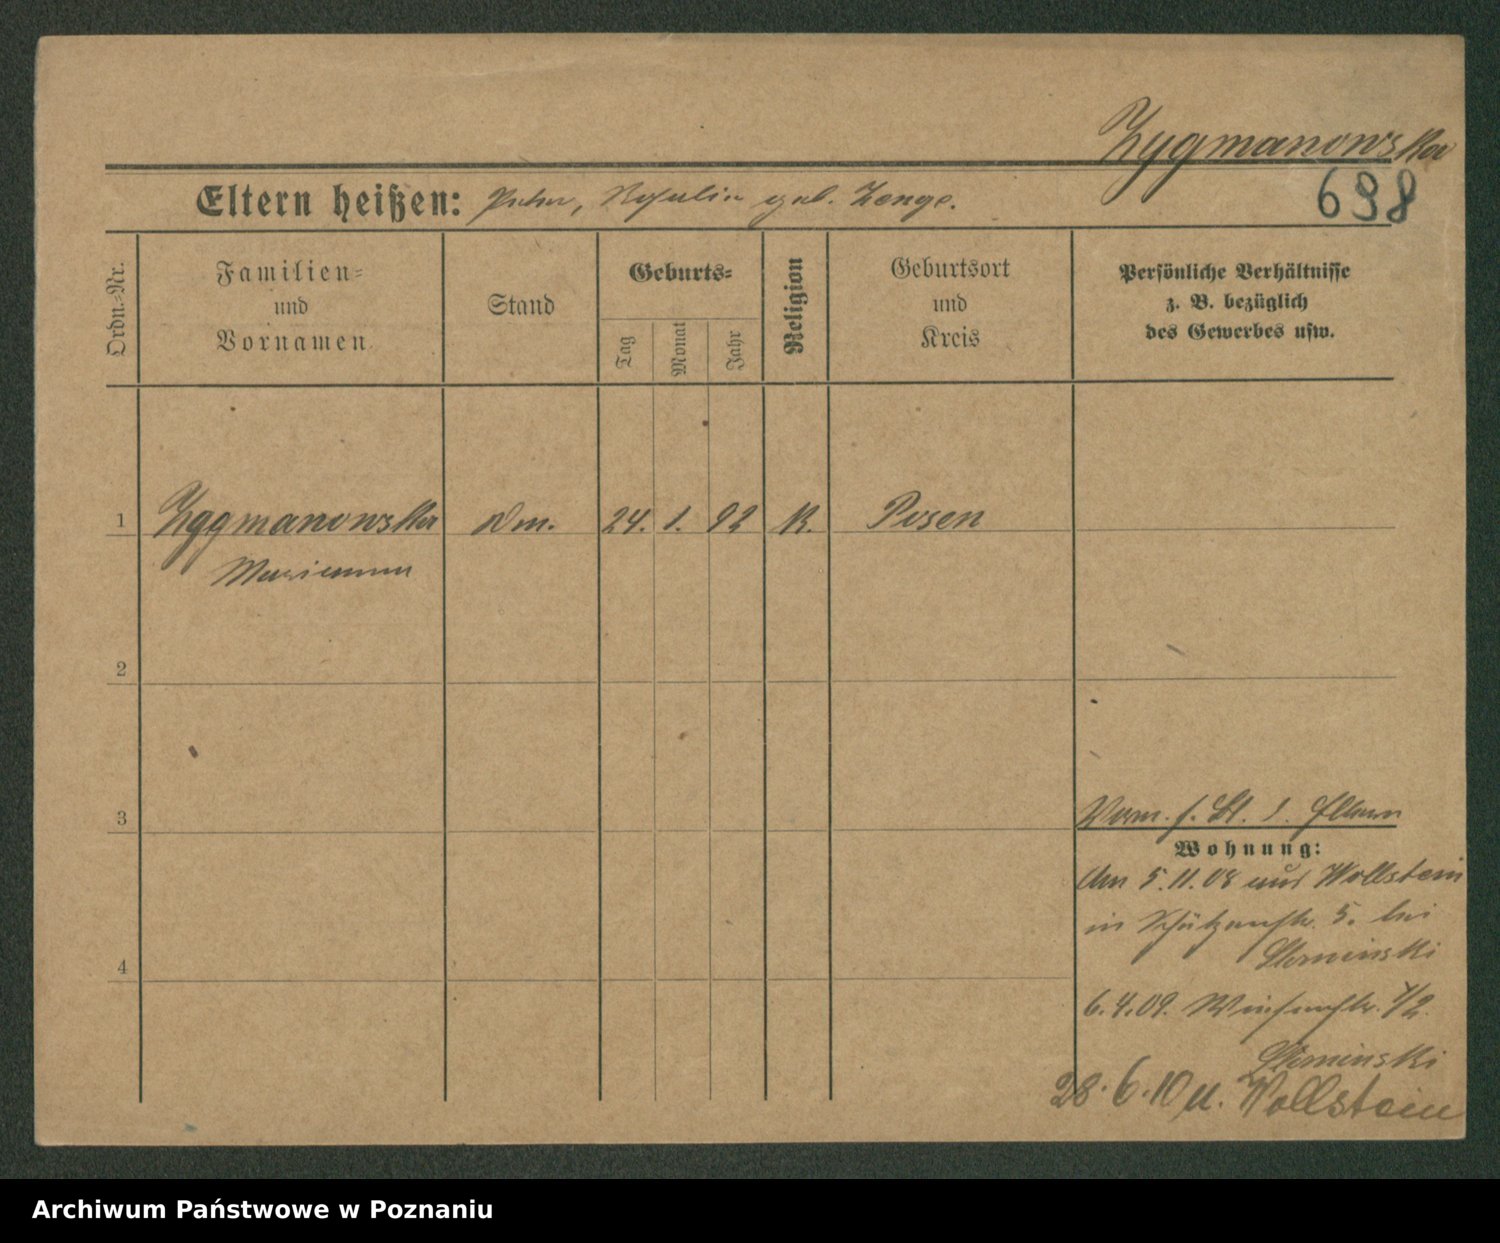 Zygmanowska
698
Eltern heißen: Peter, geb. Lange.
Ordn.=Nr.
Familien=
und
Vornamen
Stand
Geburts=
Tag
Monat
Jahr
Religion
Geburtsort
und
Kreis
Persönliche Verhältnisse
z. B. bezüglich
des Gewerbes usw.
1 Zygmanowska 24. 1. 92 K. Posen
Marianna
2
3
Vorm. s. Bl. d. Eltern
Wohnung:
Am 5.11.08 aus Wollstein
in Schützenstr. 5. bei
Slominski
4
6.4.09. Wiesenstr.
Slominski
28.6.10 n. Wollstein
Archiwum Państwowe w Poznaniu